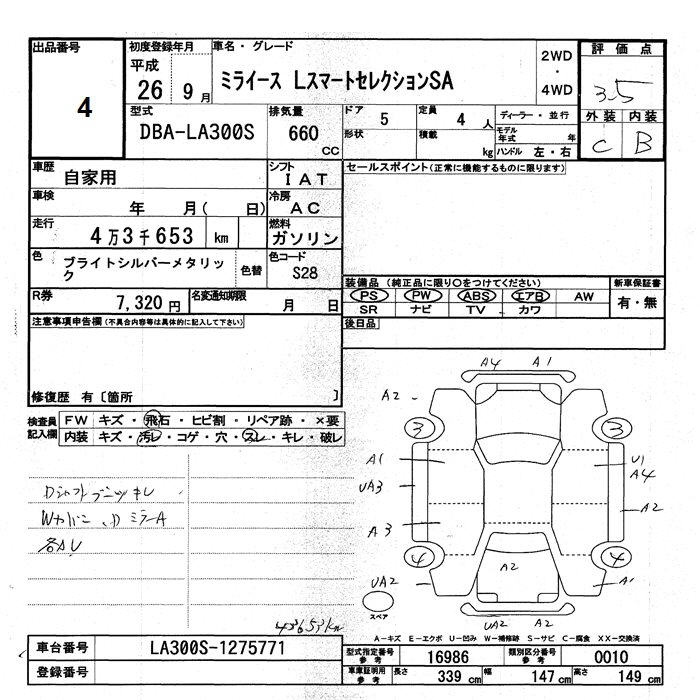 出品番号
4
初度登録年月
平成
26 9月
車名・グレード
ミライース LスマートセレクションSA
2WD
・
4WD
評価点
3.5
外装 内装
C B
型式
DBA-LA300S
排気量
660
CC
ドア 5
形状
定員 4 人
積載 kg
ディーラー・並行
モデル年式 年
ハンドル 左・右
車歴
自家用
シフト
IAT
セールスポイント(正常に機能するものに限ります)
車検
年 月( 日)
冷房
AC
走行
4万3千653 km
燃料
ガソリン
色
ブライトシルバーメタリック
色替
色コード
S28
装備品(純正品に限り○をつけてください)
新車保証書
PS PW ABS エアB AW
SR ナビ TV カワ
有・無
R券
7,320円
名変通知期限
月 日
後日品
注意事項申告欄(不具合内容等は具体的に記入して下さい)
修復歴 有〔箇所 〕
検査員記入欄
FW キズ・飛石・ヒビ割・リペア跡・×要
内装 キズ・汚レ・コゲ・穴・スレ・キレ・破レ
A4 A1
A2
3 3
A1
U1
A4
UA3
A2
A3
4 4
A2
UA2
A1
スペア
UA2 A2
43653km
A-キズ E-エクボ U-凹み W-補修跡 S-サビ C-腐食 XX-交換済
車台番号
LA300S-1275771
登録番号
型式指定番号
参考
16986
類別区分番号
参考
0010
車庫証明用
参考
長さ 339 cm
幅 147 cm
高さ 149 cm